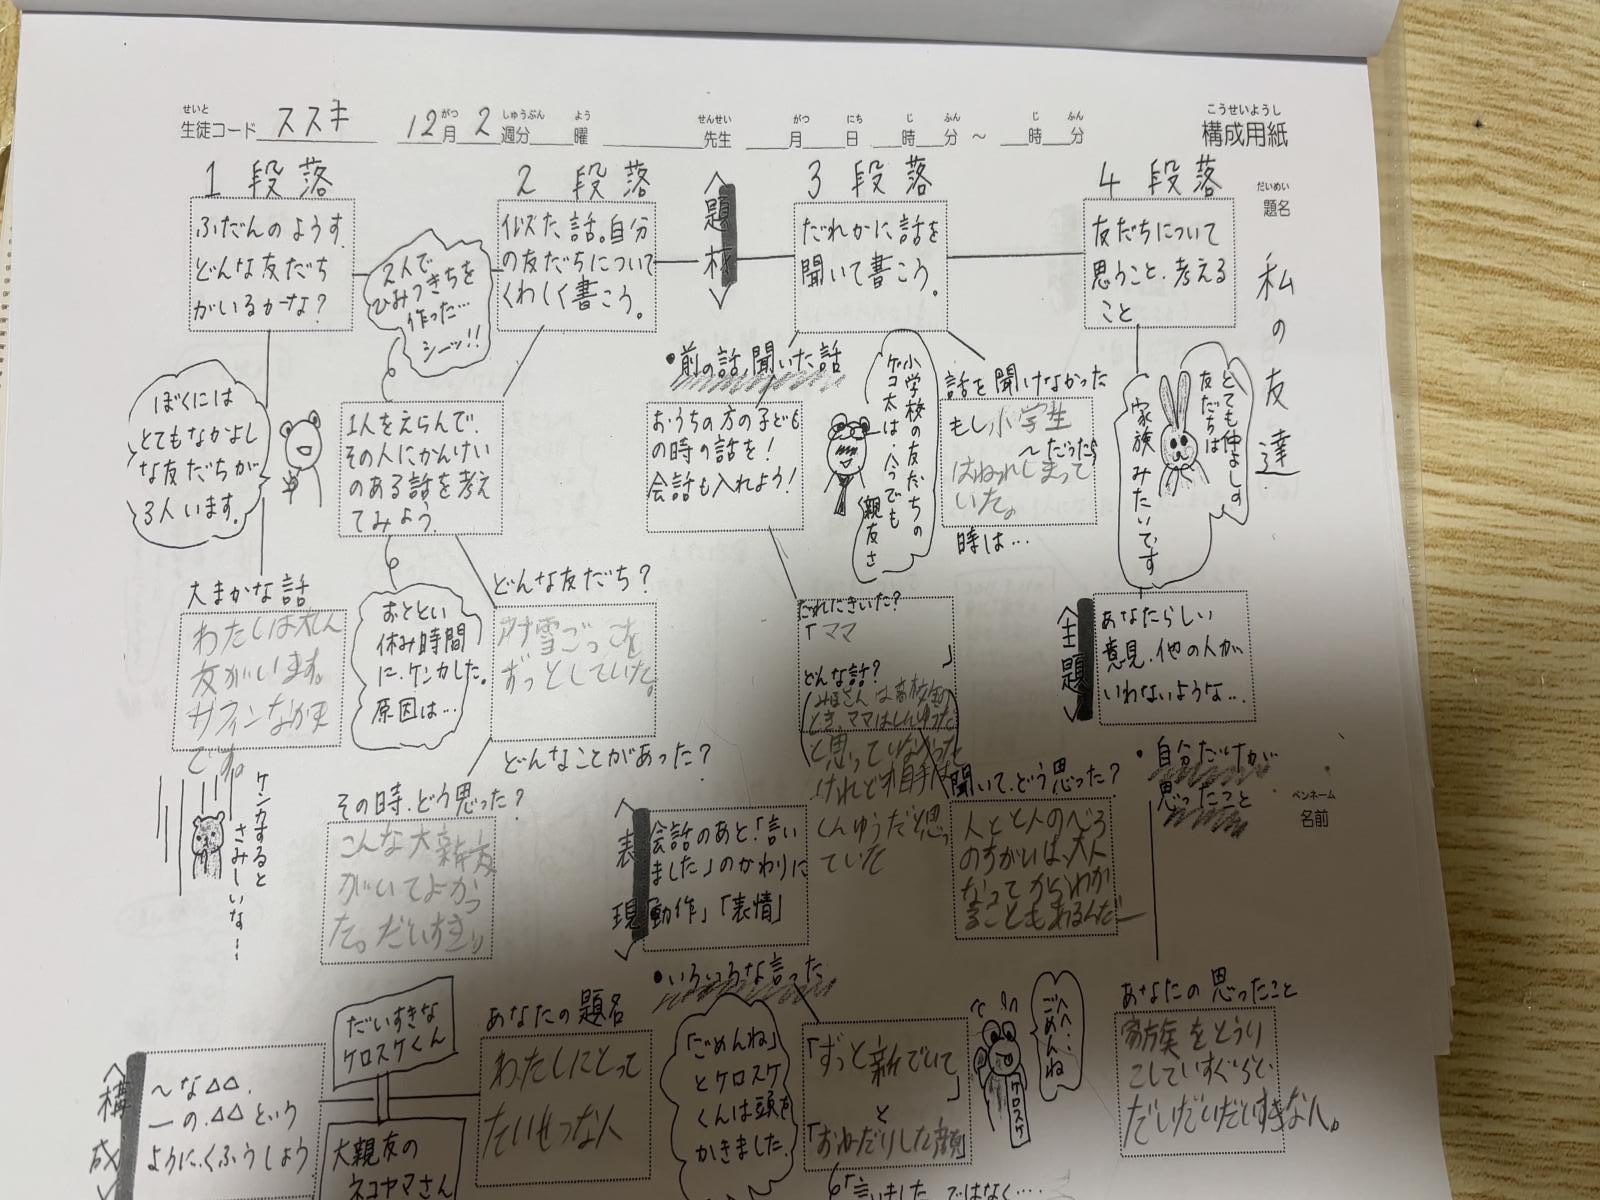 せいと
生徒コード ススキ
がつ しゅうぶん よう
12月 2 週分 曜
せんせい
先生
がつ にち じ ふん じ ふん
月 日 時 分 ～ 時 分
こうせいようし
構成用紙
だいめい
題名
私の友達
1段落
ふだんのようす。
どんな友だち
がいるかな？
ぼくには
とてもなかよし
な友だちが
3人います。
大まかな話
わたしは
友がいます。
です。
ケンカすると
さみしいな〜
2段落
似た話。自分
の友だちについて
くわしく書こう。
2人で
ひみつきちを
作った…
シーッ!!
1人をえらんで、
その人にかんけい
のある話を考え
てみよう。
おととい
休み時間
に、ケンカした。
原因は…
どんな友だち？
雪ごっこを
ずっとしていた。
どんなことがあった？
その時、どう思った？
こんな大親友
がいてよかっ
た。だいすき
題材
3段落
だれかに話を
聞いて書こう。
・前の話、聞いた話
おうちの方の子ども
の時の話を！
会話も入れよう！
小学校の友だちの
ケコ太は、今でも
親友さ
話を聞けなかった
もし小学生
〜だったら
はなれてしまって
いた。
時は…
だれにきいた？
「ママ
」
どんな話？
と思っていなかった
けれど相手は
くんゆうだと思っ
ていた
聞いて、どう思った？
人と人の
は、大人
なってからわか
ることもあるんだー
表現
会話のあと「言い
ました」のかわりに
「動作」「表情」
・いろいろな言った
「ごめんね」
とケロスケ
くんは頭を
かきました。
「ずっと親でいて
」
と
「おねだりした顔」
へへ…
ごめんね
「言いました」ではなく…
4段落
友だちについて
思うこと、考える
こと
とても仲よしの
友だちは
家族みたいです
主題
あなたらしい
意見、他の人が
いわないような…
・自分だけが
思ったこと
あなたの思ったこと
家族をとうり
こしていすぐらと、
だいだいだいすきな人。
ペンネーム
名前
構成
〜な△△、
ーの△△という
ように、くふうしよう
だいすきな
ケロスケくん
大親友の
ネコヤマさん
あなたの題名
わたしにとって
たいせつな人